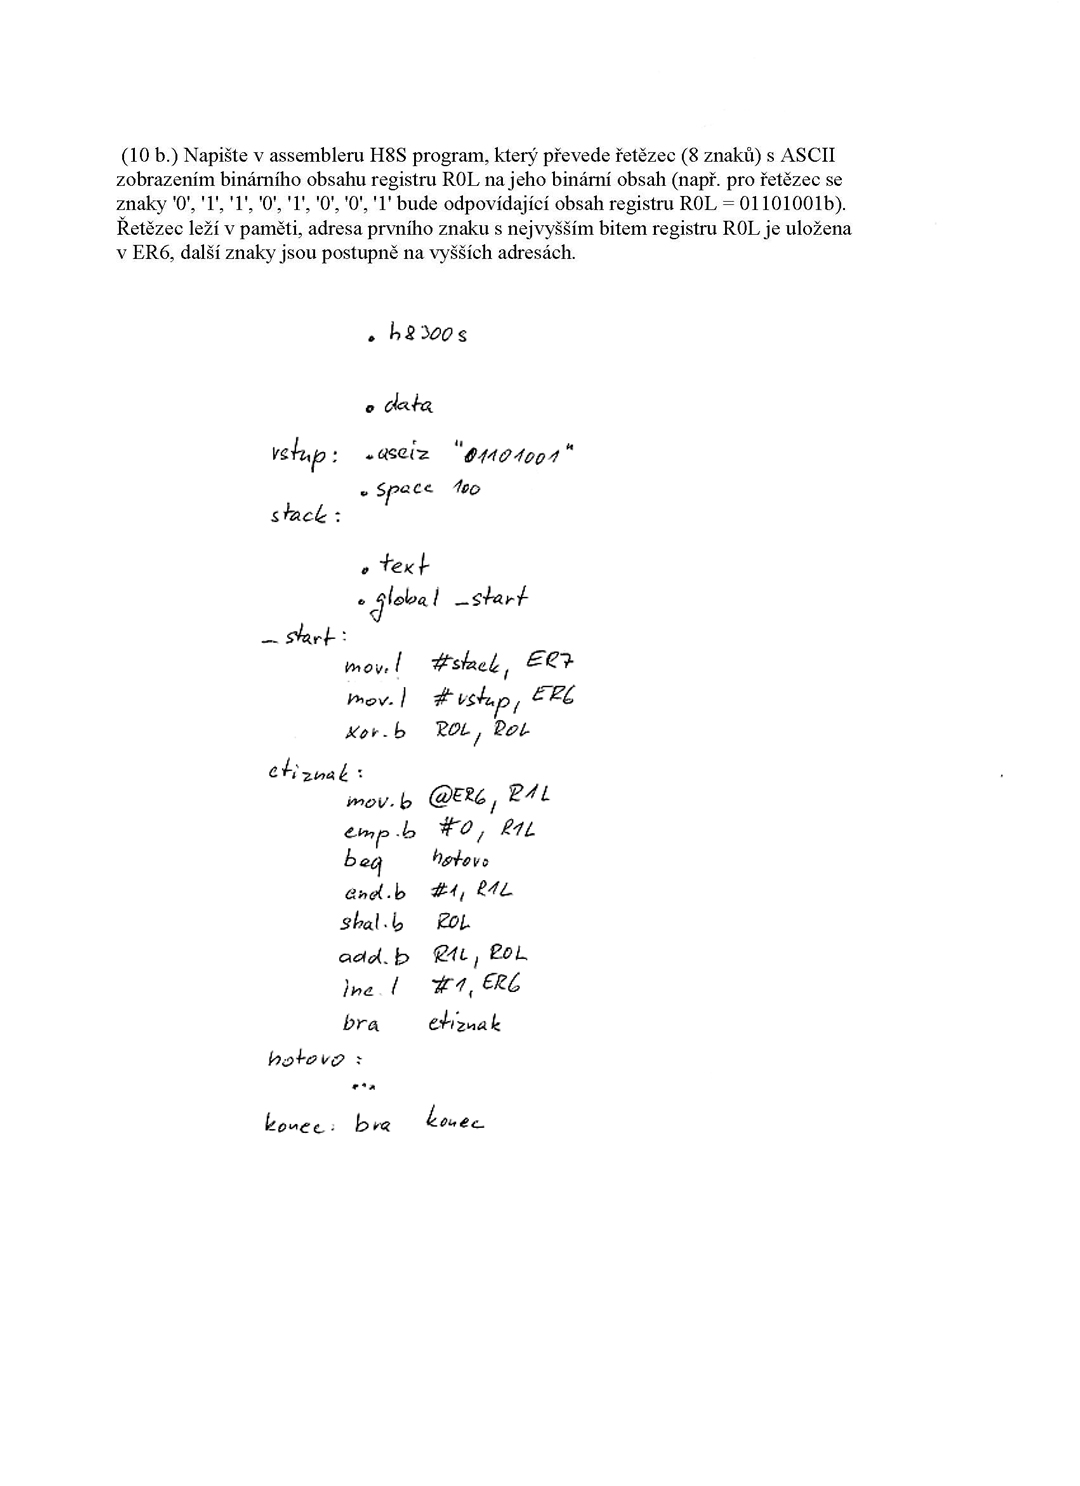 (10 b.) Napište v assembleru H8S program, který převede řetězec (8 znaků) s ASCII
zobrazením binárního obsahu registru R0L na jeho binární obsah (např. pro řetězec se
znaky '0', '1', '1', '0', '1', '0', '0', '1' bude odpovídající obsah registru R0L = 01101001b).
Řetězec leží v paměti, adresa prvního znaku s nejvyšším bitem registru R0L je uložena
v ER6, další znaky jsou postupně na vyšších adresách.
. h8300s
. data
vstup: .asciz "01101001"
. space 100
stack:
. text
. global _start
_start:
mov.l #stack, ER7
mov.l #vstup, ER6
xor.b R0L, R0L
ctiznak:
mov.b @ER6, R1L
cmp.b #0, R1L
beq hotovo
and.b #1, R1L
shal.b R0L
add.b R1L, R0L
inc.l #1, ER6
bra ctiznak
hotovo:
...
konec: bra konec